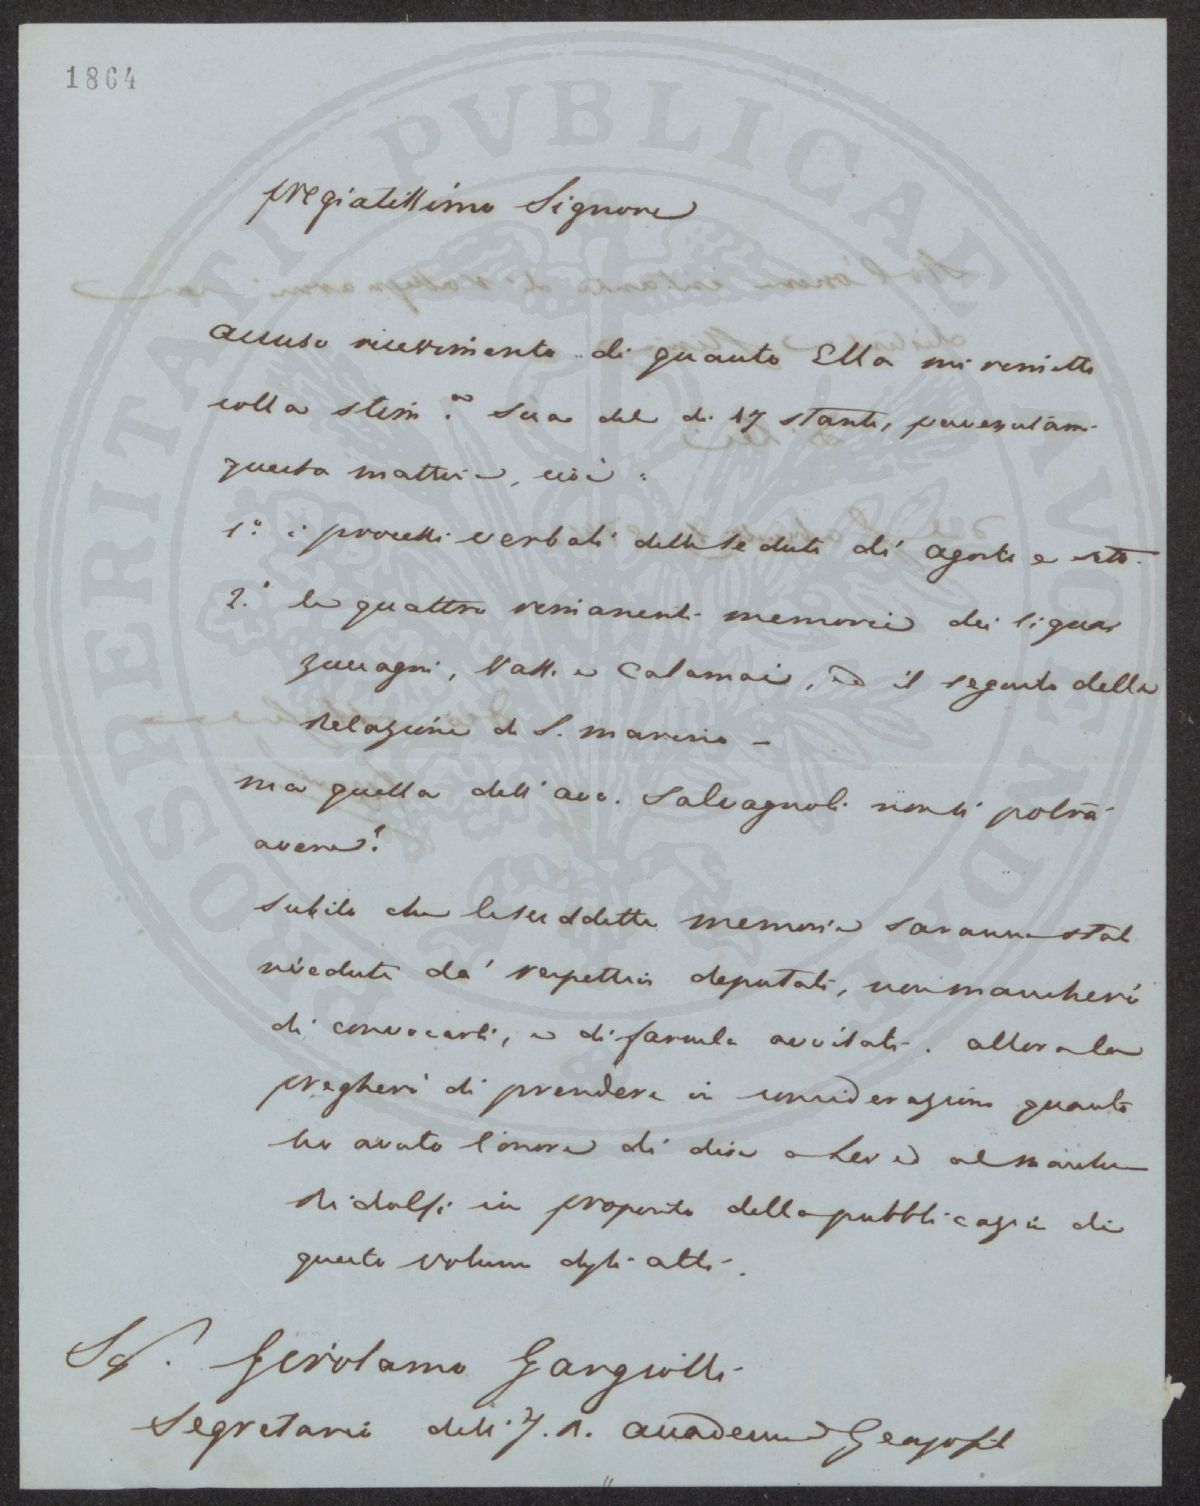 1864
PROSPERITATI PVBLICAE AVGENDAE
pregiatissimo Signore
accuso ricevimento di quanto Ella mi rimette
colla stim.ª Sua del dì 17 stante, pervenutami
questa mattina, cioè:
1.° i processi verbali delle sedute di agosto e
2.° le quattro rimanenti memorie dei Signori
Zuccagni, e Calamai, ed il seguito della
Relazione di S. Marino –
ma quella dell'avv. Salvagnoli non si potrà
avere?
subito che le suddette memorie saranno state
rivedute da' rispettivi deputati, non mancherò
di convocarli, e di farnela avvisato. allora la
pregherò di prendere in considerazione quanto
ho avuto l'onore di dire a Lei ed al marchese
Ridolfi in proposito della pubblicazione di
questo volume degli atti.
Sig. Girolamo Gargiolli
Segretario dell'I. R. Accademia Georgofili